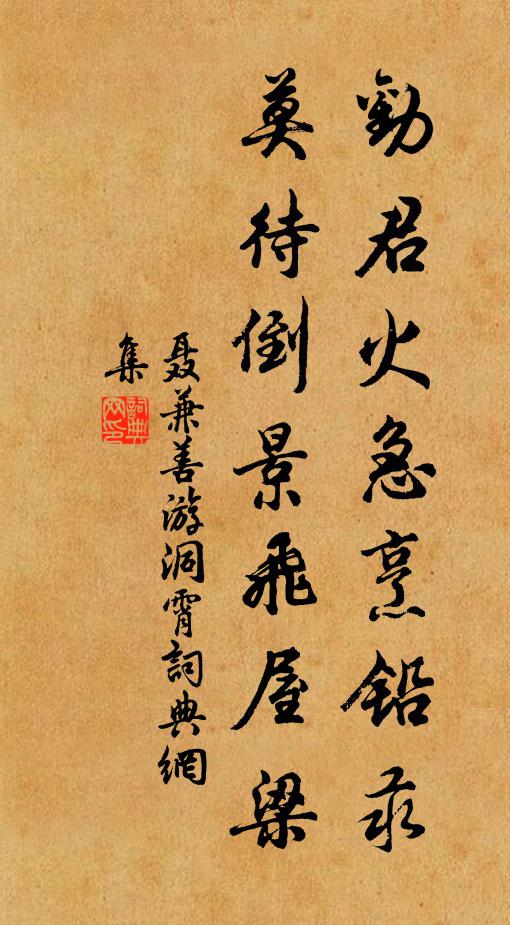 勸君火急烹鉛汞
莫待倒景飛屋梁
聂兼善游洞霄詞典網
集
詞典
网印